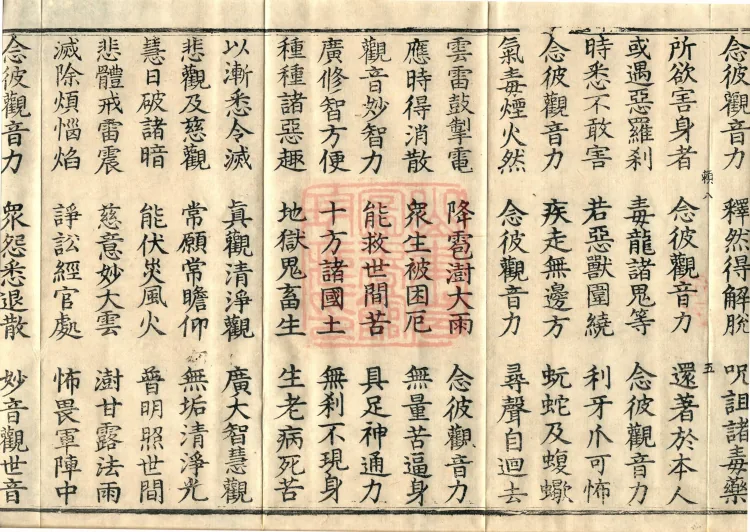 念彼觀音力 釋然得解脫 呪詛諸毒藥
五
所欲害身者 念彼觀音力 還著於本人
或遇惡羅刹 毒龍諸鬼等 念彼觀音力
時悉不敢害 若惡獸圍繞 利牙爪可怖
念彼觀音力 疾走無邊方 蚖蛇及蝮蠍
氣毒煙火然 念彼觀音力 尋聲自迴去
雲雷鼓掣電 降雹澍大雨 念彼觀音力
應時得消散 衆生被困厄 無量苦逼身
觀音妙智力 能救世間苦 具足神通力
廣修智方便 十方諸國土 無刹不現身
種種諸惡趣 地獄鬼畜生 生老病死苦
以漸悉令滅 眞觀清淨觀 廣大智慧觀
悲觀及慈觀 常願常瞻仰 無垢清淨光
慧日破諸暗 能伏災風火 普明照世間
悲體戒雷震 慈意妙大雲 澍甘露法雨
滅除煩惱焰 諍訟經官處 怖畏軍陣中
念彼觀音力 衆怨悉退散 妙音觀世音